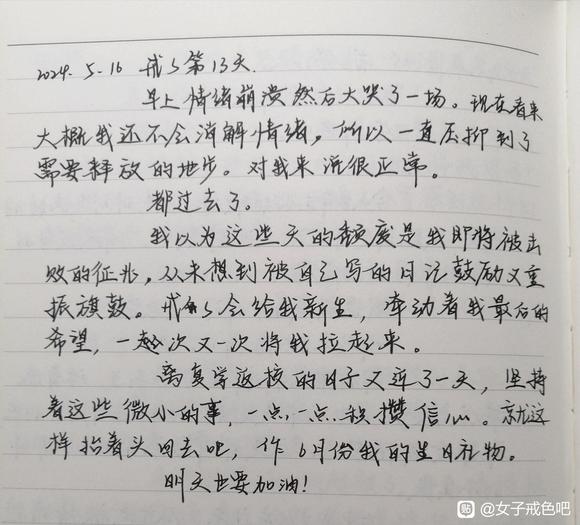 2024. 5. 16 戒S第13天.
早上情绪崩溃然后大哭了一场。现在看来
大概我还不会消解情绪，所以一直压抑到了
需要释放的地步。对我来说很正常。
都过去了。
我以为这些天的颓废是我即将被击
败的征兆，从未想到被自己写的日记鼓励又重
振旗鼓。戒S会给我新生，牵动着我最后的
希望，一次又一次将我拉起来。
离复学返校的日子又近了一天，坚持
着这些微小的事，一点一点积攒信心。就这
样抬着头回去吧，作6月份我的生日礼物。
明天也要加油！
贴 @女子戒色吧